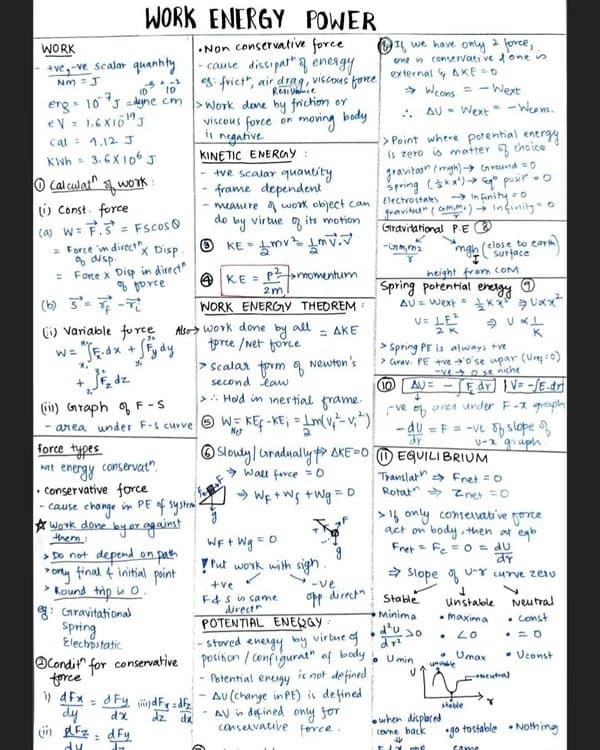 WORK ENERGY POWER
WORK
- +ve, -ve scalar quantity
Nm = J
10⁻⁵ × 10⁻²
erg = 10⁻⁷ J = dyne cm
eV = 1.6×10⁻¹⁹ J
cal = 4.12 J
KWh = 3.6×10⁶ J
① Calculatⁿ of work :
(i) Const. force
(a) W = F⃗.S⃗ = FScosθ
= Force in directⁿ of disp. × Disp.
= Force × Disp in directⁿ of force
(b) S⃗ = r⃗f - r⃗i
(ii) Variable force
W = ∫Fx.dx + ∫Fy dy
+ ∫Fz dz
(iii) Graph of F-S
- area under F-s curve
force types
wrt energy conservatⁿ.
• conservative force
- cause change in PE of system
☆ Work done by or against
them :
> Do not depend on path
> only final & initial point
> Round trip is 0.
eg: Gravitational
Spring
Electrostatic
② Conditⁿ for conservative
force
i) dFx/dy = dFy/dx (iii) dFx/dz = dFz/dx
(ii) dFz/dy = dFy
• Non conservative force
- cause dissipatⁿ of energy
eg: frictⁿ, air drag, viscous force
Resistance
> Work done by friction or
viscous force on moving body
is negative.
KINETIC ENERGY :
- +ve scalar quantity
- frame dependent
- measure of work object can
do by virtue of its motion
③ KE = 1/2 mv² = 1/2 m v⃗.v⃗
④ K.E = P²/2m → momentum
WORK ENERGY THEOREM :
Also → work done by all force / Net force = ΔKE
> Scalar form of Newton's
second law
> ∴ Hold in inertial frame.
⑤ WNet = KEf - KEi = 1/2 m(vf² - vi²)
⑥ Slowly / Gradually ⇒ ΔKE=0
⇒ Wall force = 0
⇒ WF + Ws + Wg = 0
g
F
WF + Wg = 0
g
! Put work with sign.
+ve -ve
F & s in same directⁿ
opp directⁿ
POTENTIAL ENERGY :
- stored energy by virtue of
position / configuratⁿ of body
- Potential energy is not defined
- ΔU (change in PE) is defined
- ΔU is defined only for
conservative force.
If we have only 2 force,
one is conservative & one is
external & ΔKE = 0
⇒ Wcons = - Wext
∴ ΔU = Wext = - Wcons.
> Point where potential energy
is zero is matter of choice
gravitatⁿ (mgh) → Ground = 0
Spring (½kx²) → Eqb positⁿ = 0
Electrostates → Infinity = 0
gravitatⁿ → Infinity = 0
Gravitational P.E ⑧
-Gm₁m₂/r
mgh (close to earth surface)
height from COM
Spring potential energy ⑨
ΔU = Wext = 1/2 Kx² ⇒ U∝x²
U = 1/2 F²/K ⇒ U ∝ 1/K
> Spring PE is always +ve
> Grav. PE +ve → 0 se upar (Umg=0)
-ve → 0 se niche
⑩ ΔU = - ∫F.dr | V = -∫E.dr
-ve of area under F-x graph
-dU/dr = F = -ve of slope of
U-x graph
⑪ EQUILIBRIUM
Translatⁿ ⇒ Fnet = 0
Rotatⁿ ⇒ τnet = 0
> If only conservative force
act on body, then at eqb
Fnet = Fc = 0 = dU/dr
⇒ Slope of U-r curve zero
Stable Unstable Neutral
• Minima • maxima • const
• d²U/dr² >0 • <0 • = 0
• Umin Umax • Uconst
U
unstable
neutral
stable
• when displaced
came back • go to stable • Nothing